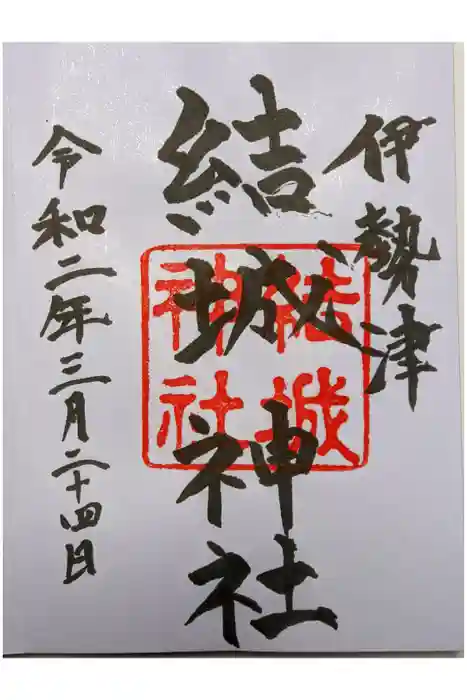 伊勢津
結城神社
結城
神社
令和二年三月二十四日